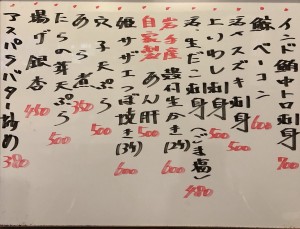 インド鮪中トロ刺身 700
鯨ベーコン 600
活〆スズキ刺身 500
上いわし刺身 500
活生だこ刺身(ごま塩) 480
岩手産 殻付生がき(2ヶ) 600
自家製 あん肝 500
姫サザエつぼ焼き(3ヶ) 600
穴子天ぷら 500
あら煮 350
たらの芽天ぷら 500
揚げ銀杏 450
アスパラバター炒め 380